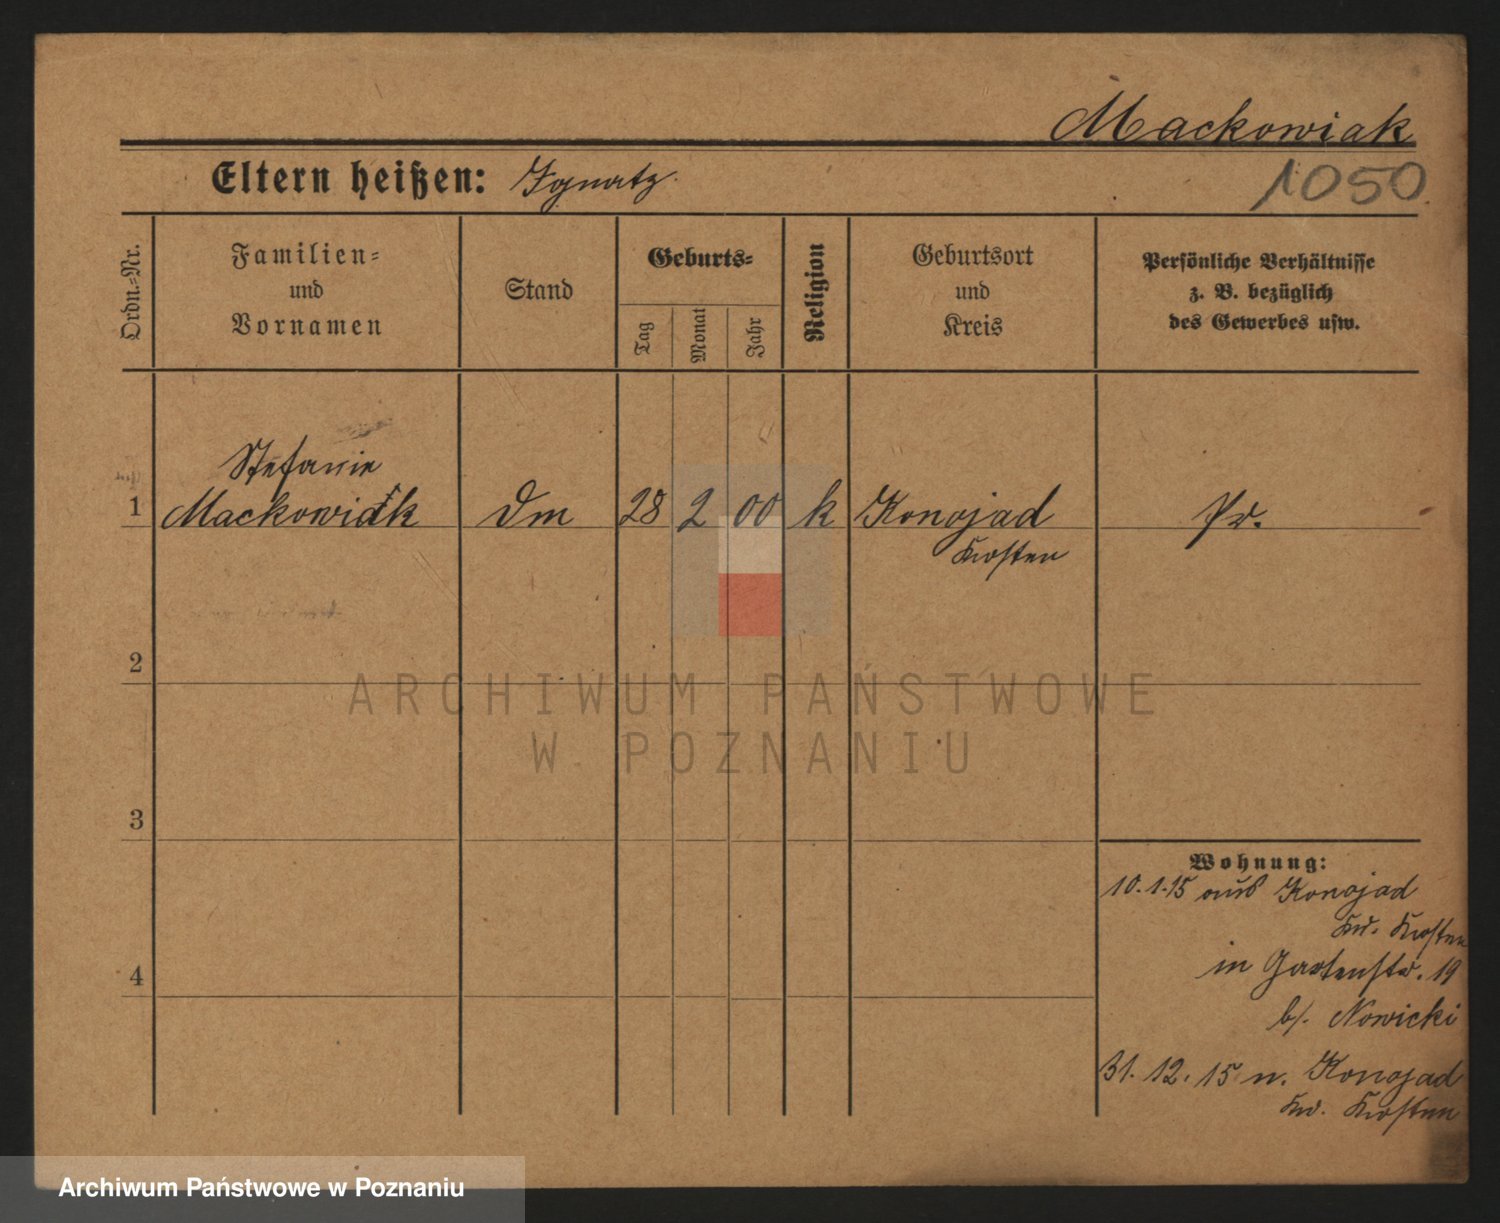 Mackowiak
Eltern heißen: Ignatz.
1050
Ordn.-Nr.
Familien-
und
Vornamen
Stand
Geburts-
Tag
Monat
Jahr
Religion
Geburtsort
und
Kreis
Persönliche Verhältnisse
z. B. bezüglich
des Gewerbes usw.
Stefanie
1 Mackowiak Dm 28 2 00 k Konojad Pr.
Kosten
2
ARCHIWUM PAŃSTWOWE
W POZNANIU
3
Wohnung:
10.1.15 aus Konojad
Kr. Kosten
4
in Gartenstr. 19
b/. Nowicki
31.12.15 n. Konojad
Kr. Kosten
Archiwum Państwowe w Poznaniu